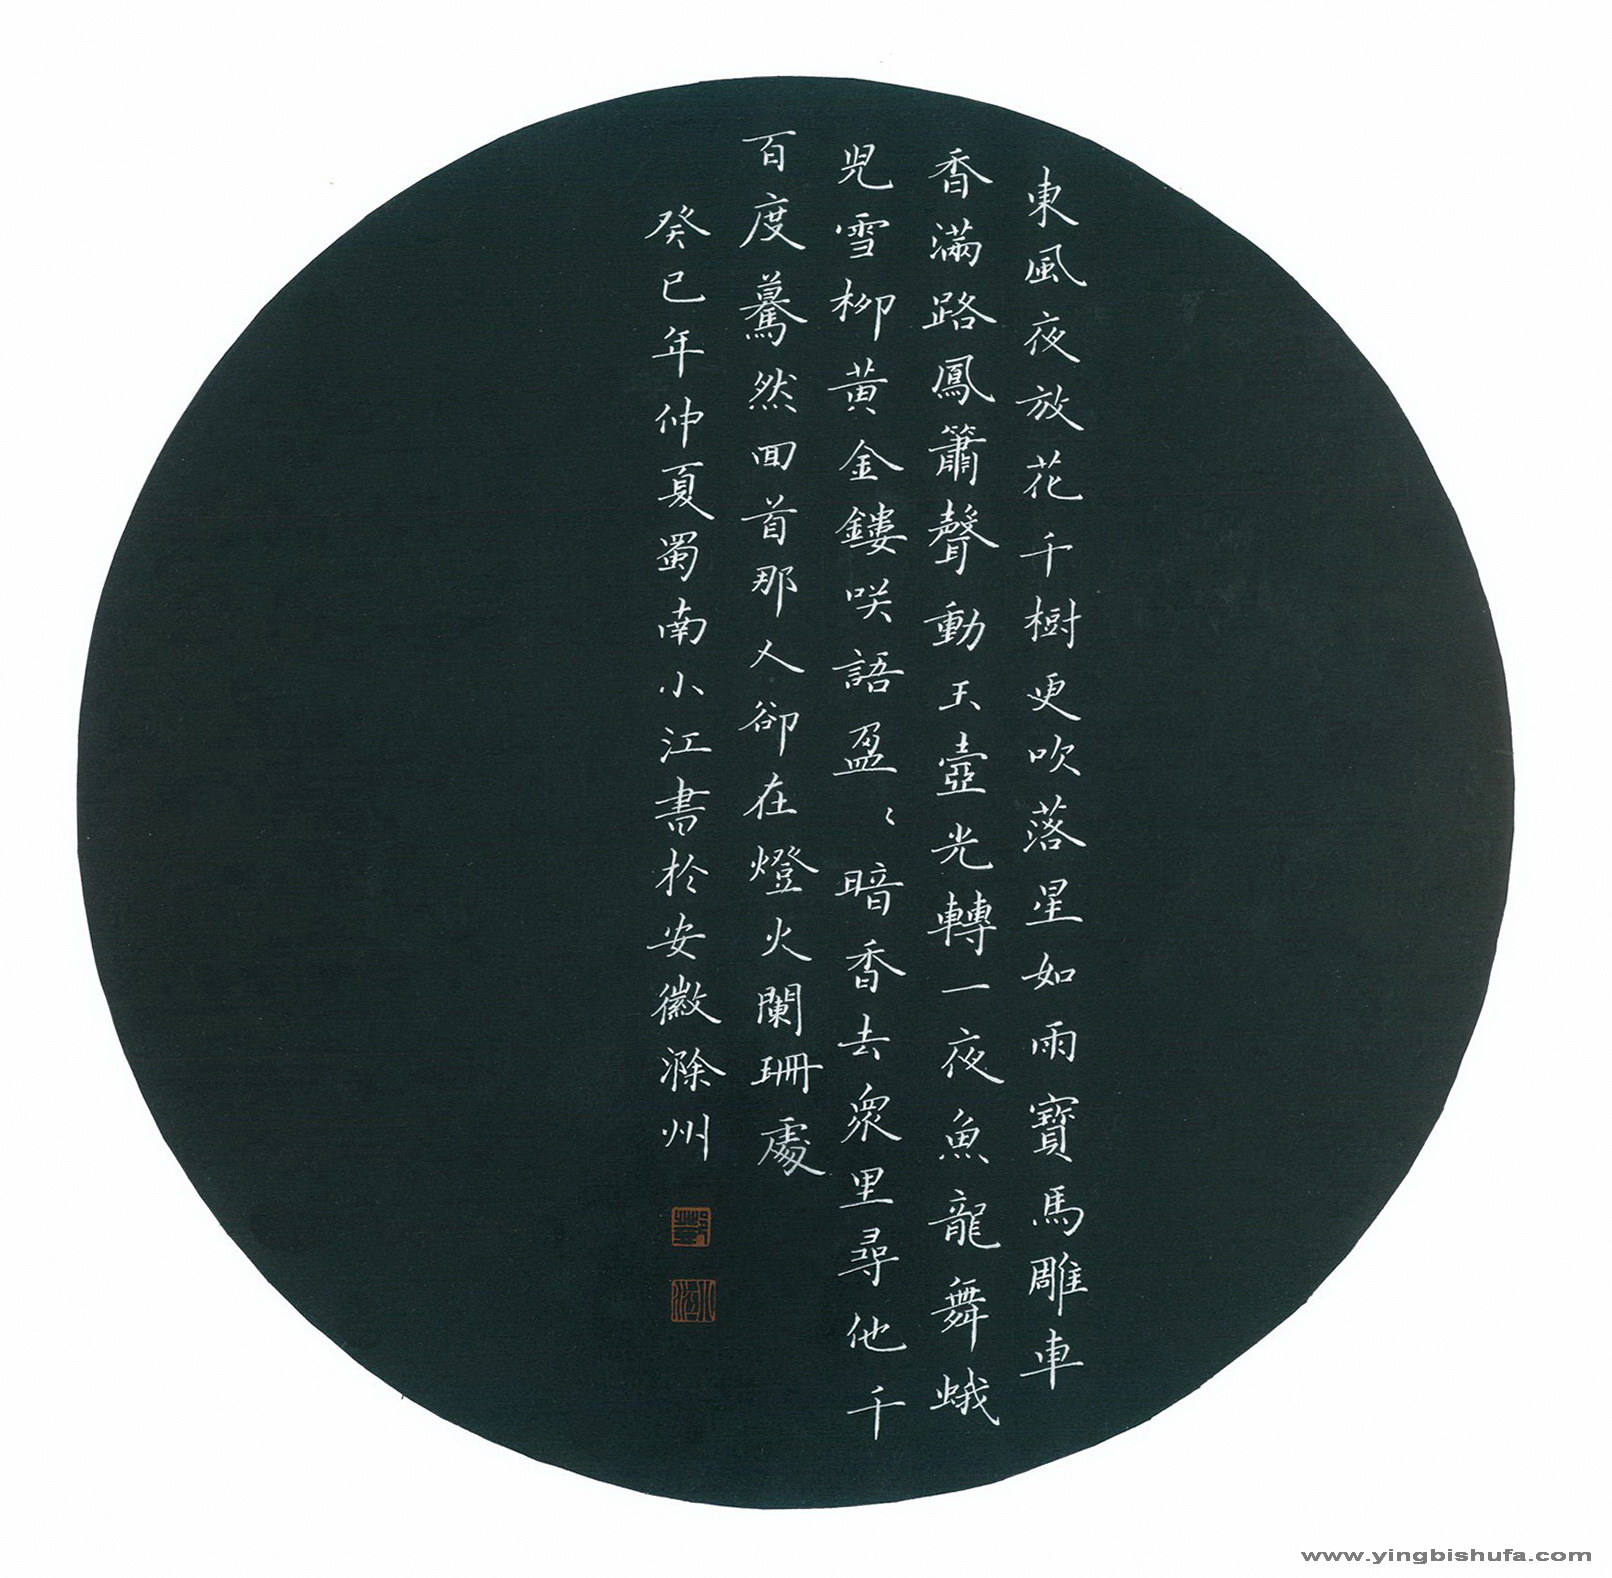 東風夜放花千樹更吹落星如雨寶馬雕車
香滿路鳳簫聲動玉壺光轉一夜魚龍舞蛾
兒雪柳黃金鏤咲語盈〻暗香去衆里尋他千
百度驀然回首那人卻在燈火闌珊處
癸巳年仲夏蜀南小江書於安徽滁州
www.yingbishufa.com